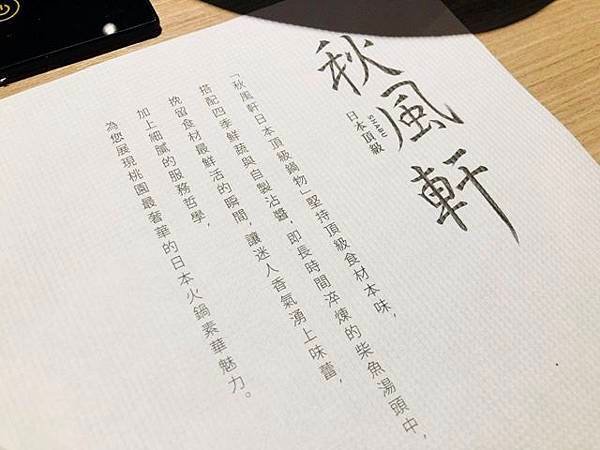 秋風軒
日本頂級
「秋風軒日本頂級鍋物」堅持頂級食材本味，
搭配四季鮮蔬與自製沾醬，即長時間淬煉的柴魚湯頭中，
挽留食材最鮮活的瞬間，讓迷人香氣湧上味蕾，
加上細膩的服務哲學，
為您展現桃園最奢華的日本火鍋素華魅力。